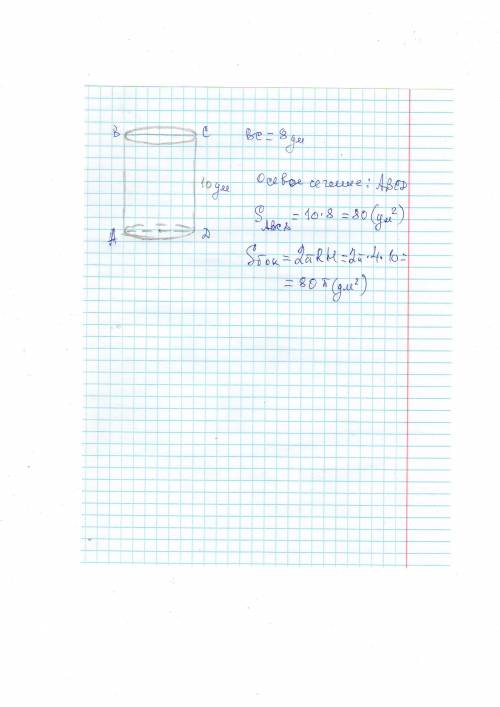 B C BC = 8 дм
10 дм
Осевое сечение: ABCD
S_ABCD = 10·8 = 80 (дм²)
A D
Sбок = 2πRH = 2π·4·10 =
= 80 π (дм²)